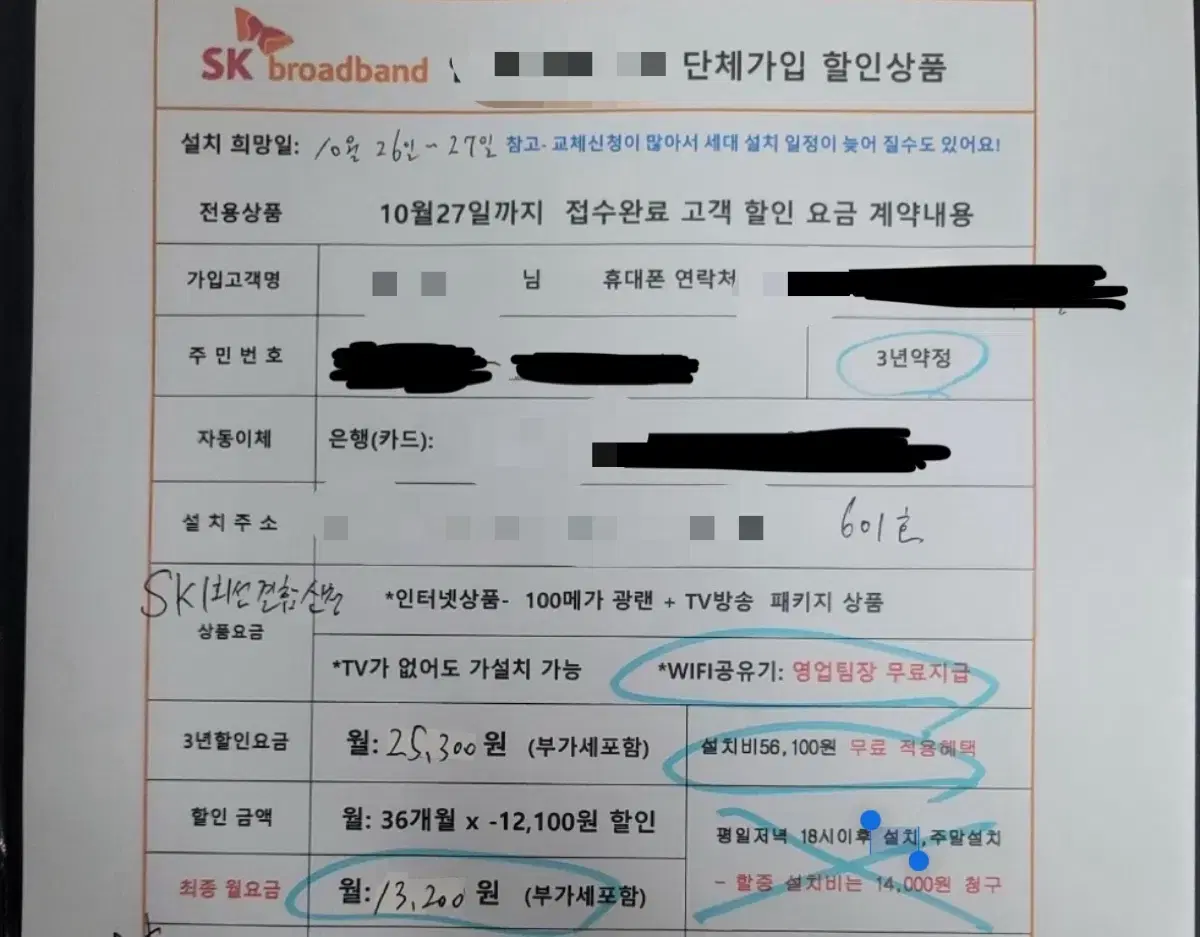 SK broadband 단체가입 할인상품
설치 희망일: 10월 26일~27일 참고- 교체신청이 많아서 세대 설치 일정이 늦어 질수도 있어요!
전용상품 10월27일까지 접수완료 고객 할인 요금 계약내용
가입고객명 님 휴대폰 연락처
주 민 번 호 3년약정
자동이체 은행(카드):
설 치 주 소 601호
SK1회선결합신청
*인터넷상품- 100메가 광랜 + TV방송 패키지 상품
상품요금
*TV가 없어도 가설치 가능 *WIFI공유기: 영업팀장 무료지급
3년할인요금 월: 25,300원 (부가세포함) 설치비56,100원 무료 적용혜택
할인 금액 월: 36개월 x -12,100원 할인 평일저녁 18시이후 설치,주말설치
최종 월요금 월: 13,200원 (부가세포함) - 할증 설치비는 14,000원 청구